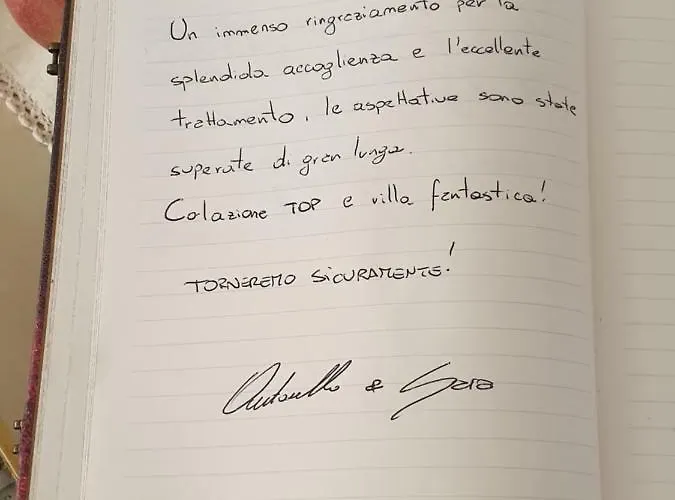 Un immenso ringraziamento per la
splendida accoglienza e l'eccellente
trattamento, le aspettative sono state
superate di gran lunga.
Colazione TOP e villa fantastica!
TORNEREMO SICURAMENTE!
Antonello & Sara